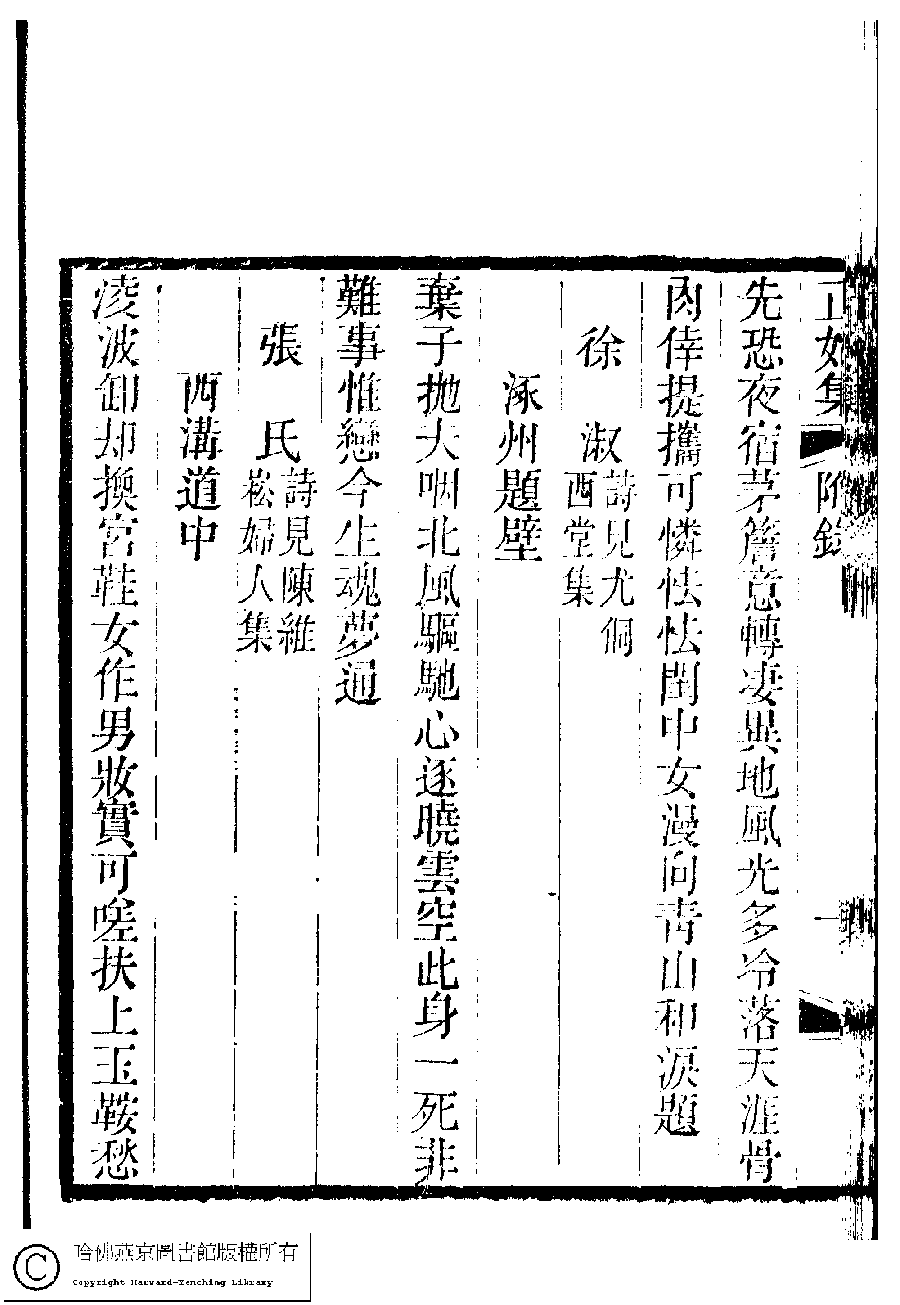 正始集 附錄
先恐夜宿茅簷意轉凄異地風光多冷落天涯骨
肉倖提攜可憐怯怯閨中女漫向靑山和淚題
徐 淑 詩見尤侗西堂集
涿州題壁
棄子拋夫咽北風驅馳心逐曉雲空此身一死非
難事惟戀今生魂夢通
張 氏 詩見陳維崧婦人集
西溝道中
凌波卸却換宮鞋女作男妝實可嗟扶上玉鞍愁
哈佛燕京圖書館版權所有
Copyright Harvard-Yenching Library